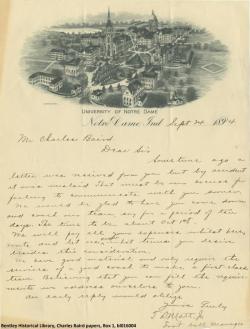 UNIVERSITY OF NOTRE DAME
Notre Dame, Ind. Sept 24, 1894
Mr Charles Baird
Dear Sir
Some time ago a
letter was received from you but by accident
it was mislaid. That must be my excuse for
failing to communicate with you sooner.
We would be glad to have you come
and coach our team for period of ten
days. The time to be about Oct 1st.
We will pay all your expenses whilst here,
route and let us what terms you desire
besides this consideration.
We have good material and only require the
services of a good coach to make a first class
team. Believing that you can fill the require-
ments we address ourselves to you.
An early reply would oblige
Yours Truly
Foot Ball Manager
Bentley Historical Library, Charles Baird papers, Box 1, bl016004